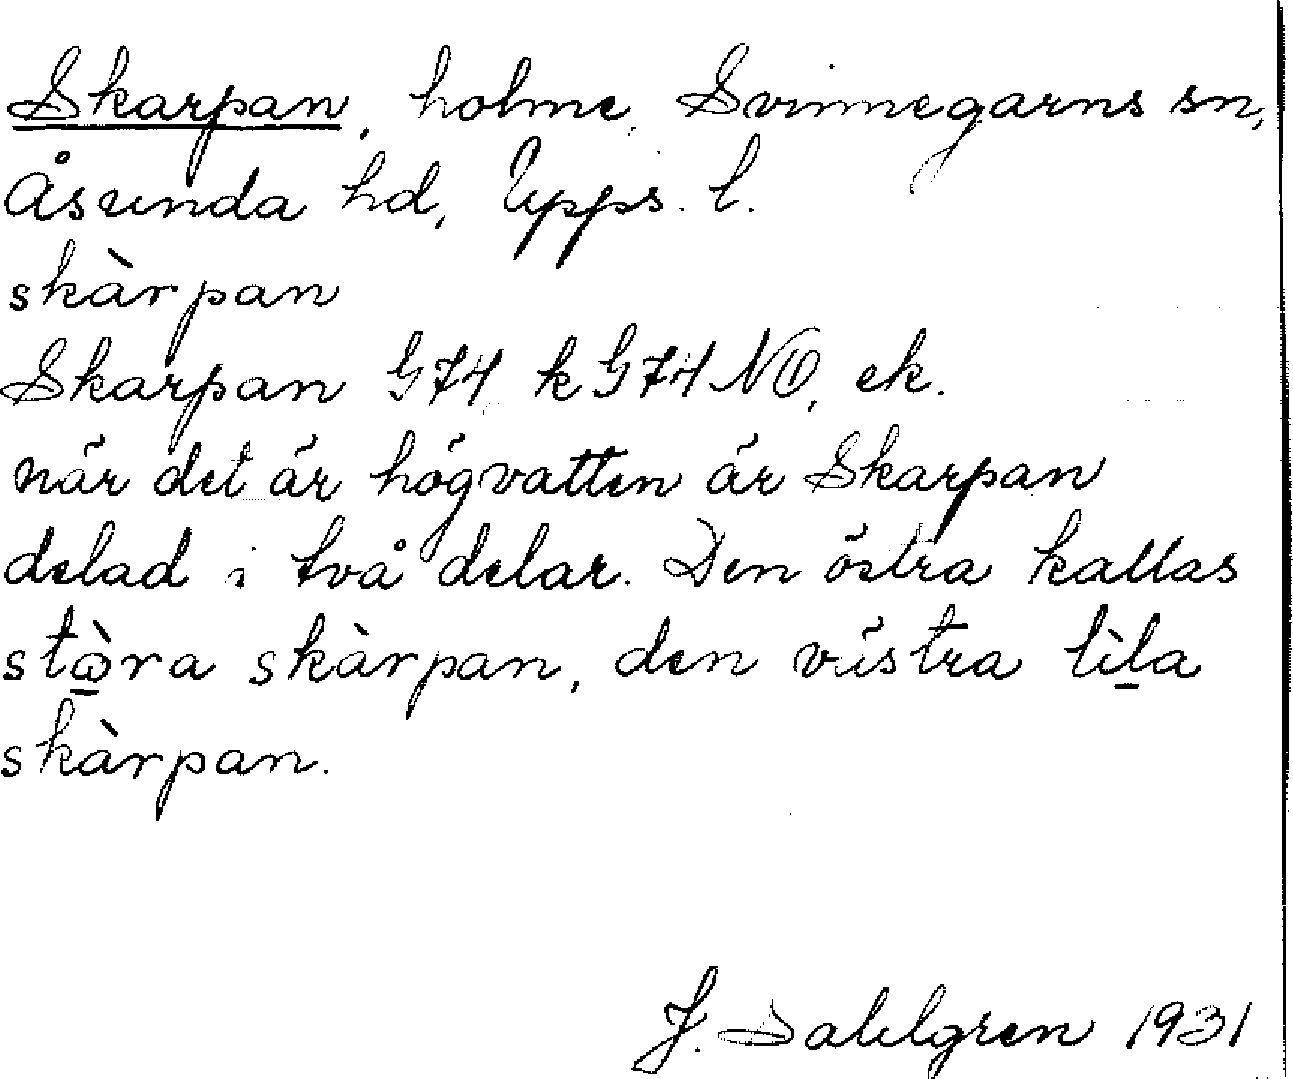 Skarpan, holme, Svinnegarns sn,
Åsunda hd, Upps. l.
skàrpan
Skarpan G74 k G74 NO, ek.
när det är högvatten är Skarpan
delad i två delar. Den östra kallas
stὼ̱ra skàrpan, den västra lìḻa
skàrpan.
J. Dahlgren 1931